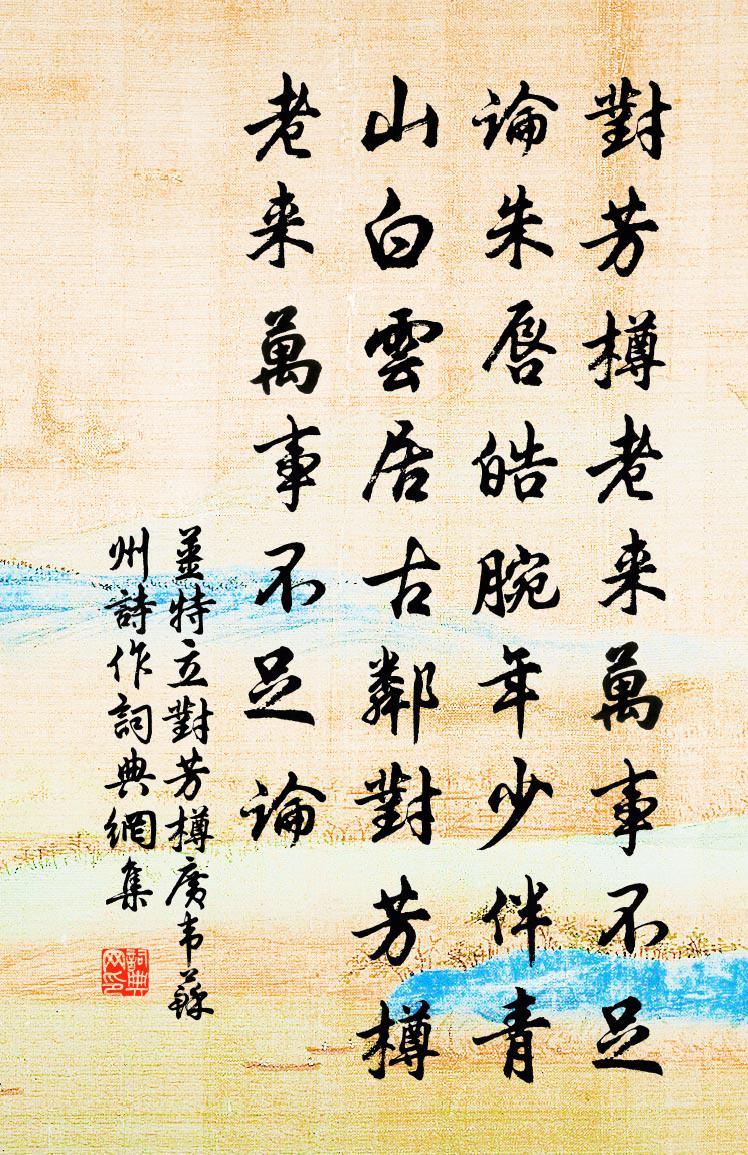 對芳樽老来萬事不足
論朱唇皓腕年少伴青
山白雲居古鄰對芳樽
老来萬事不足論
姜特立對芳樽廣韦蘇
州詩作詞典網集
詞典
网印